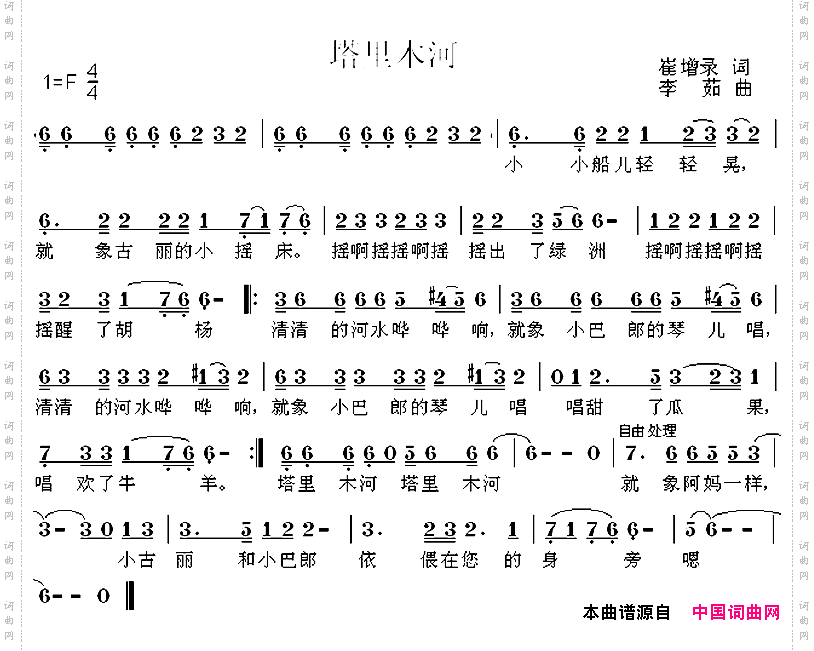 塔里木河
1=F 4/4
崔增录 词
李 茹 曲
6 6 6 6 6 6 2 3 2 | 6 6 6 6 6 6 2 3 2 | 6. 6 2 2 1 2 3 3 2 |
小 小船儿轻 轻晃,
6. 2 2 2 2 1 7 1 7 6 | 2 3 3 2 3 3 | 2 2 3 5 6 6 - | 1 2 2 1 2 2 |
就 象古 丽的小 摇 床。 摇啊摇摇啊摇 摇出 了绿 洲 摇啊摇摇啊摇
3 2 3 1 7 6 6 - ‖: 3 6 6 6 6 5 #4 5 6 | 3 6 6 6 6 6 5 #4 5 6 |
摇醒 了胡 杨 清清 的河水哗 哗 响,就象 小巴 郎的琴 儿 唱,
6 3 3 3 3 2 #1 3 2 | 3 3 3 3 3 3 2 #1 3 2 | 0 1 2. 5 3 2 3 1 |
清清 的河水哗 哗 响,就象 小巴 郎的琴 儿 唱 唱甜 了瓜 果,
7 3 3 1 7 6 6 - :‖ 6 6 6 6 0 5 6 6 6 | 6 - - 0 | 自由处理 7. 6 6 5 5 3 |
唱 欢了牛 羊。 塔里 木河 塔里 木河 就 象阿妈一样,
3 - 3 0 1 3 | 3. 5 1 2 2 - | 3. 2 3 2. 1 | 7 1 7 6 6 - | 5 6 - - |
小古 丽 和小巴郎 依 偎在您 的 身 旁 嗯
6 - - 0 ‖
本曲谱源自 中国词曲网
词曲网